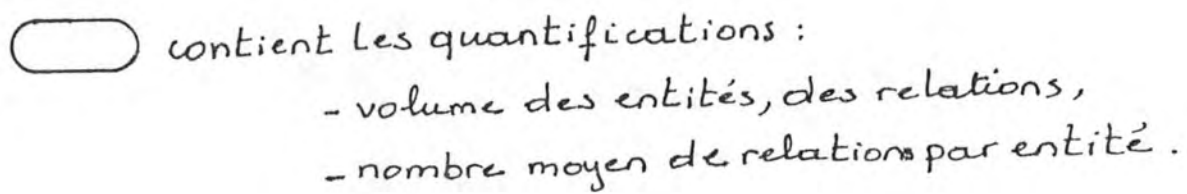 contient les quantifications :
- volume des entités, des relations,
- nombre moyen de relations par entité.